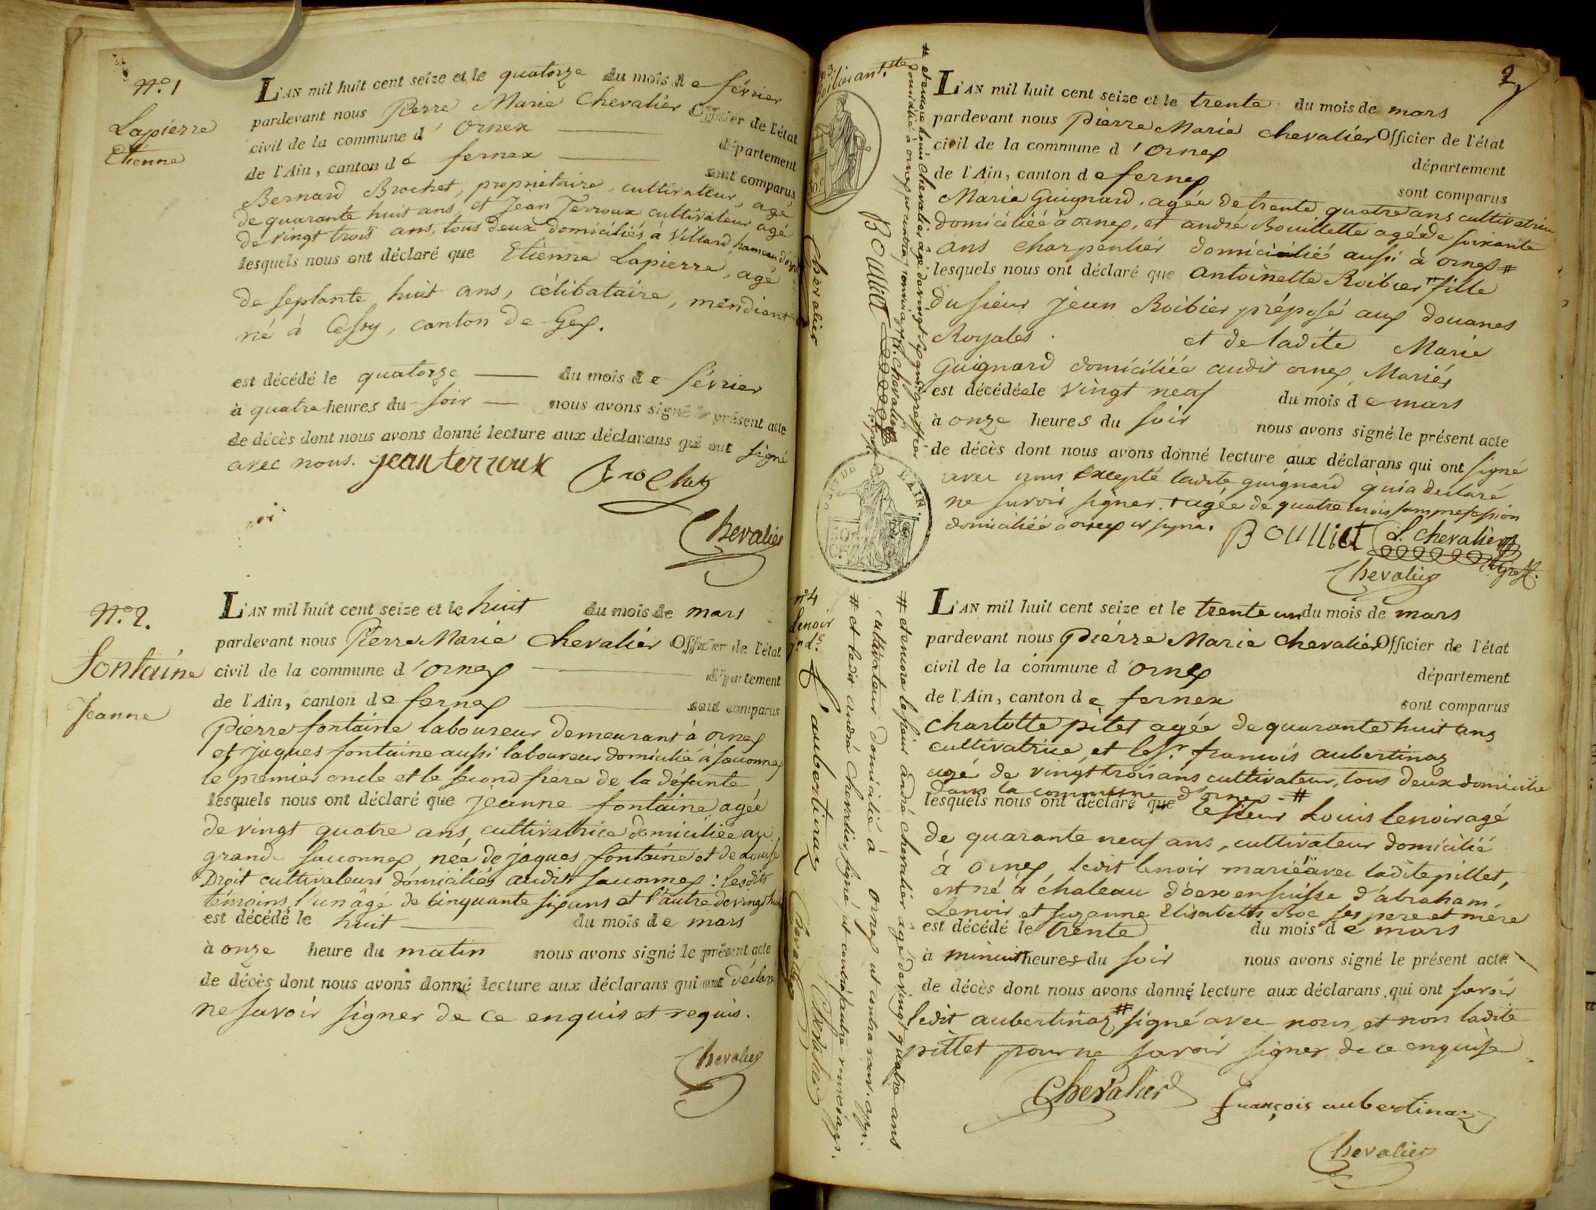 N.o 1
Lapierre
Etienne
L'AN mil huit cent seize et le quatorze du mois de février
pardevant nous Pierre Marie Chevalier Officier de l'état
civil de la commune d'Ornex département
de l'Ain, canton de fernex sont comparus
Bernard Brochet, propriétaire, cultivateur, agé
de quarante huit ans, et Jean Terroux cultivateur agé
de vingt trois ans, tous deux domiciliés à Villard hameau
lesquels nous ont déclaré que Etienne Lapierre, agé
de septante huit ans, célibataire, mendiant
né à Cessy, canton de Gex.
est décédé le quatorze du mois de février
à quatre heures du soir nous avons signé le présent acte
de décès dont nous avons donné lecture aux déclarans qui ont signé
avec nous. jean terroux Brochet
Chevalier
N.o 2.
fontaine
Jeanne
L'AN mil huit cent seize et le huit du mois de mars
pardevant nous Pierre Marie Chevalier Officier de l'état
civil de la commune d'ornex département
de l'Ain, canton de fernex sont comparus
pierre fontaine laboureur demeurant à ornex
et jaques fontaine aussi laboureur domicilié à saconnex
le premier oncle et le second frere de la défunte
lesquels nous ont déclaré que jeanne fontaine agée
de vingt quatre ans, cultivatrice domiciliée au
grand saconnex, née de jaques fontaine et de Louise
Droit cultivateurs domiciliés audit saconnex: lesdits
témoins l'un agé de cinquante six ans et l'autre de vingt
est décédé le huit du mois de mars
à onze heure du matin nous avons signé le présent acte
de décès dont nous avons donné lecture aux déclarans qui ont déclaré
ne savoir signer de ce enquis et requis.
Chevalier
2
L'AN mil huit cent seize et le trente du mois de mars
pardevant nous pierre Marie Chevalier Officier de l'état
civil de la commune d'ornex département
de l'Ain, canton de fernex sont comparus
Marie Guignard, agée de trente quatre ans cultivatrice
domiciliée à ornex, et andré Bouillette agé de soixante
ans charpentier domicilié aussi à ornex #
lesquels nous ont déclaré que antoinette Roibier fille
du sieur jean Roibier préposé aux douanes
Royales. et de ladite Marie
Guignard domiciliée audit ornex, Mariés
est décédée le vingt neuf du mois de mars
à onze heures du soir nous avons signé le présent acte
de décès dont nous avons donné lecture aux déclarans qui ont signé
avec nous excepté ladite guignard qui a declaré
ne savoir signer. + agée de quatre mois sans profession
domiciliée à ornex
BOUIIIet L. Chevalier
Chevalier
# et encore louis chevalier agé de vingt
domicilié à ornex
BOUIIIet
L. Chevalier
Chevalier
DE L'AIN.
n.o 4
Lenoir
L'AN mil huit cent seize et le trente un du mois de mars
pardevant nous pierre Marie Chevalier Officier de l'état
civil de la commune d'ornex département
de l'Ain, canton de fernex sont comparus
Charlotte pitet agée de quarante huit ans
cultivatrice et le Sr. francois aubertinaz
agé de vingt trois ans cultivateur, tous deux domiciliés
dans la commune d'ornex - #
lesquels nous ont déclaré que le sieur Louis Lenoir agé
de quarante neuf ans, cultivateur domicilié
à ornex, ledit lenoir marié avec ladite pittet,
est né à chateau d'oex en suisse d'abraham
Lenoir et suzanne Elisabeth Boc ses pere et mère
est décédé le trente du mois de mars
à minuit heures du soir nous avons signé le présent acte
de décès dont nous avons donné lecture aux déclarans qui ont savoir
ledit aubertinaz # signé avec nous, et non ladite
pittet pour ne savoir signer de ce enquise
Chevalier
françois aubertinaz
Chevalier
# et encore le sieur andré chevalier agé de vingt quatre ans
cultivateur domicilié à ornex
# et ledit andré chevalier, signé
f aubertinaz Chevalier